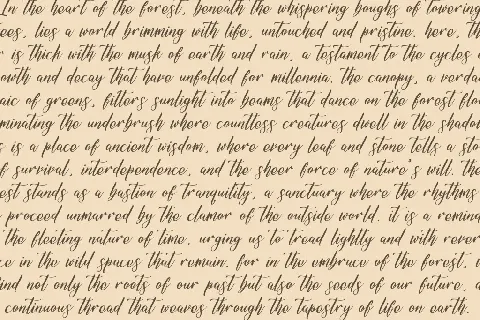 In the heart of the forest, beneath the whispering boughs of towering
ees, lies a world brimming with life, untouched and pristine. here, th
r is thick with the musk of earth and rain, a testament to the cycles o
owth and decay that have unfolded for millennia. The canopy, a verda
aic of greens, filters sunlight into beams that dance on the forest flo
minating the underbrush where countless creatures dwell in the shadow
s is a place of ancient wisdom, where every leaf and stone tells a sto
f survival, interdependence, and the sheer force of nature's will. The
est stands as a bastion of tranquility, a sanctuary where the rhythms
proceed unmarred by the clamor of the outside world. it is a remind
the fleeting nature of time, urging us to tread lightly and with rever
ce in the wild spaces that remain. for in the embrace of the forest, w
ind not only the roots of our past but also the seeds of our future, a
continuous thread that weaves through the tapestry of life on earth.